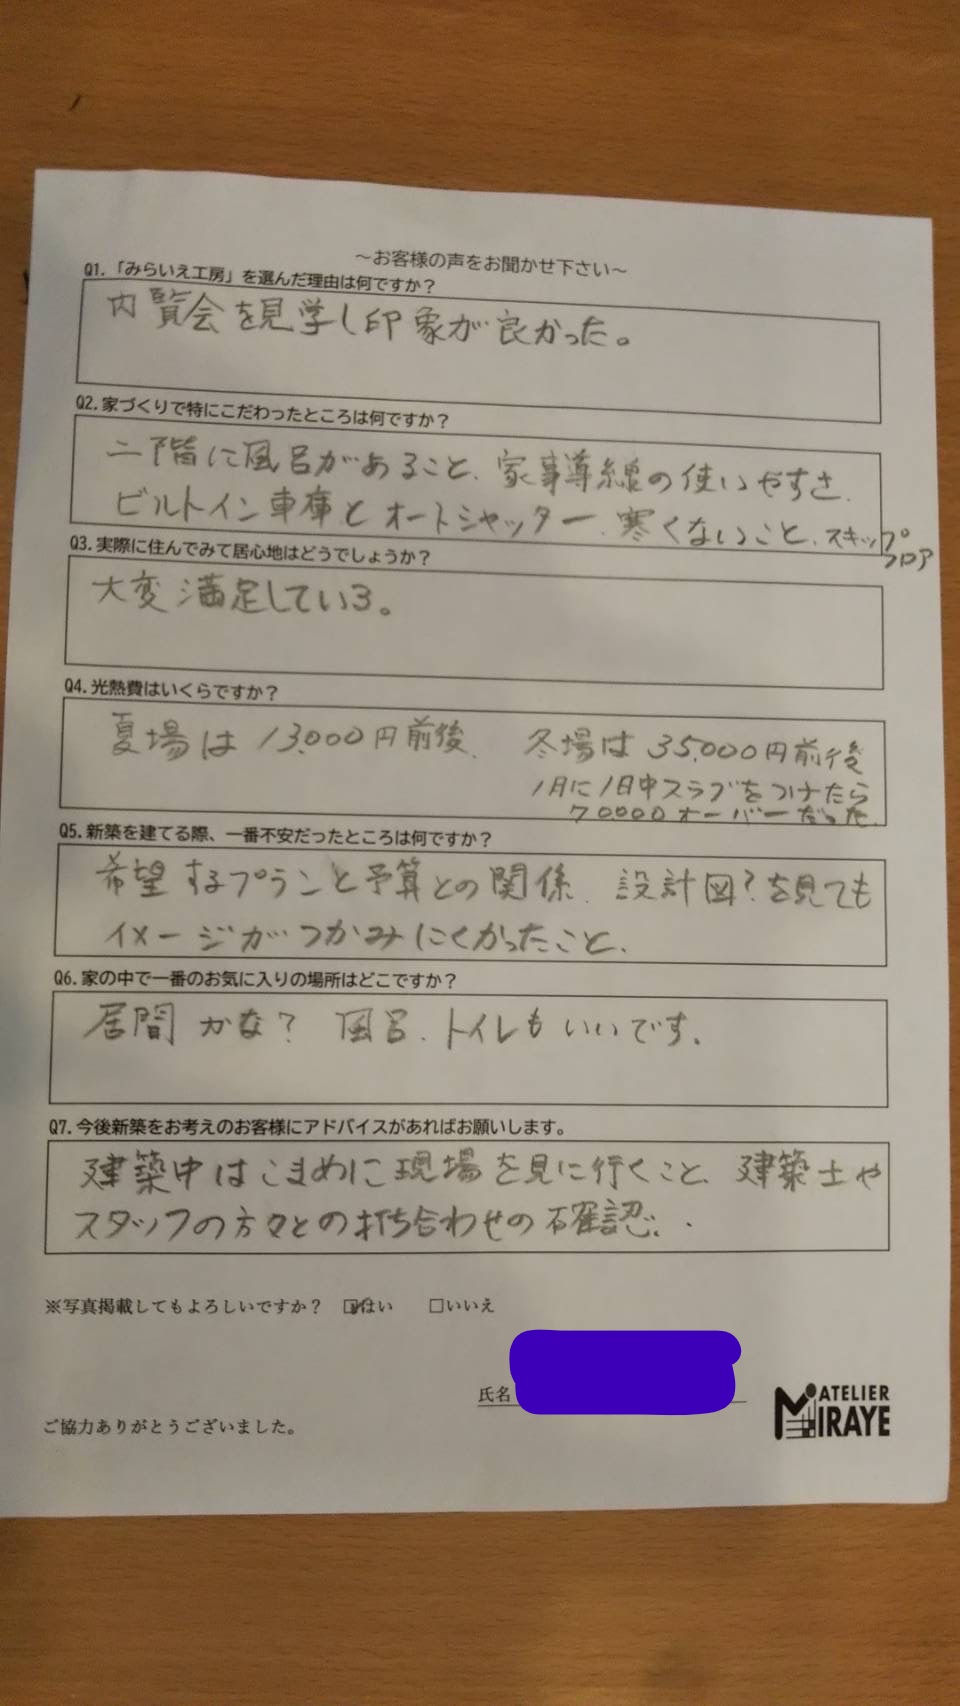 ～お客様の声をお聞かせ下さい～
Q1.「みらいえ工房」を選んだ理由は何ですか？
内覧会を見学し印象が良かった。
Q2.家づくりで特にこだわったところは何ですか？
二階に風呂があること、家事導線の使いやすさ、
ビルトイン車庫とオートシャッター、寒くないこと、スキップ
フロア
Q3.実際に住んでみて居心地はどうでしょうか？
大変満足している。
Q4.光熱費はいくらですか？
夏場は13,000円前後、 冬場は35,000円前後
1月に1日中スラブをつけたら
70000オーバーだった。
Q5.新築を建てる際、一番不安だったところは何ですか？
希望するプランと予算との関係、設計図？を見ても
イメージがつかみにくかったこと、
Q6.家の中で一番のお気に入りの場所はどこですか？
居間かな？ 風呂、トイレもいいです。
Q7.今後新築をお考えのお客様にアドバイスがあればお願いします。
建築中はこまめに現場を見に行くこと、建築士や
スタッフの方々との打ち合わせの確認。
※写真掲載してもよろしいですか？ ☑はい □いいえ
氏名
ATELIER
MIRAYE
ご協力ありがとうございました。